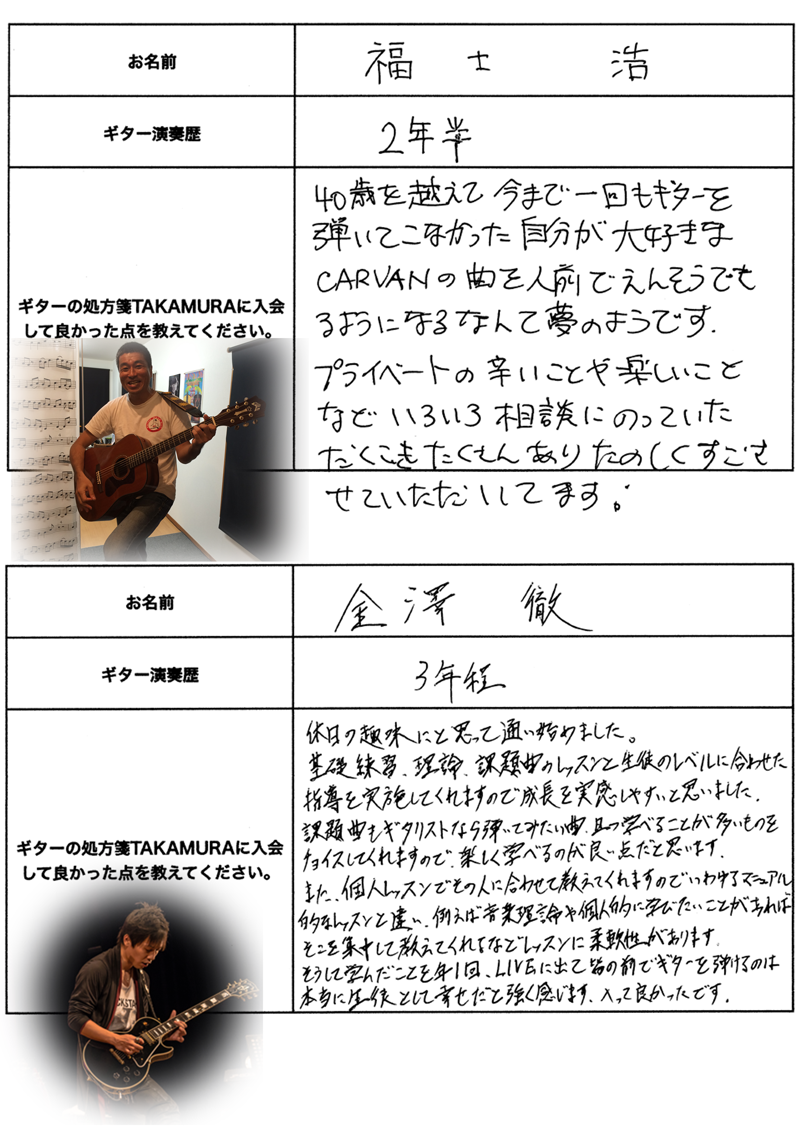 お名前
福士 浩
ギター演奏歴
2年半
ギターの処方箋TAKAMURAに入会
して良かった点を教えてください。
40歳を越えて今まで一回もギターを
弾いてこなかった自分が大好きな
CARVANの曲を人前でえんそうでき
るようになるなんて夢のようです.
プライベートの辛いことや楽しいこと
などいろいろ相談にのっていた
だくこともたくさんありたのしくすごさ
せていただいてます!
お名前
金澤 徹
ギター演奏歴
3年程
ギターの処方箋TAKAMURAに入会
して良かった点を教えてください。
休日の趣味にと思って通い始めました。
基礎練習、理論、課題曲のレッスンと生徒のレベルに合わせた
指導を実施してくれますので成長を実感しやすいと思いました.
課題曲もギタリストなら弾いてみたい曲、且つ学べることが多いものを
チョイスしてくれますので、楽しく学べるのが良い点だと思います.
また、個人レッスンでその人に合わせて教えてくれますのでいわゆるマニュアル
的なレッスンと違い、例えば音楽理論や個人的に学びたいことがあれば
そこを集中して教えてくれるなどレッスンに柔軟性があります.
そうして学んだことを年1回、LIVEに出て皆の前でギターを弾けるのは
本当に生徒として幸せだと強く感じます、入って良かったです.